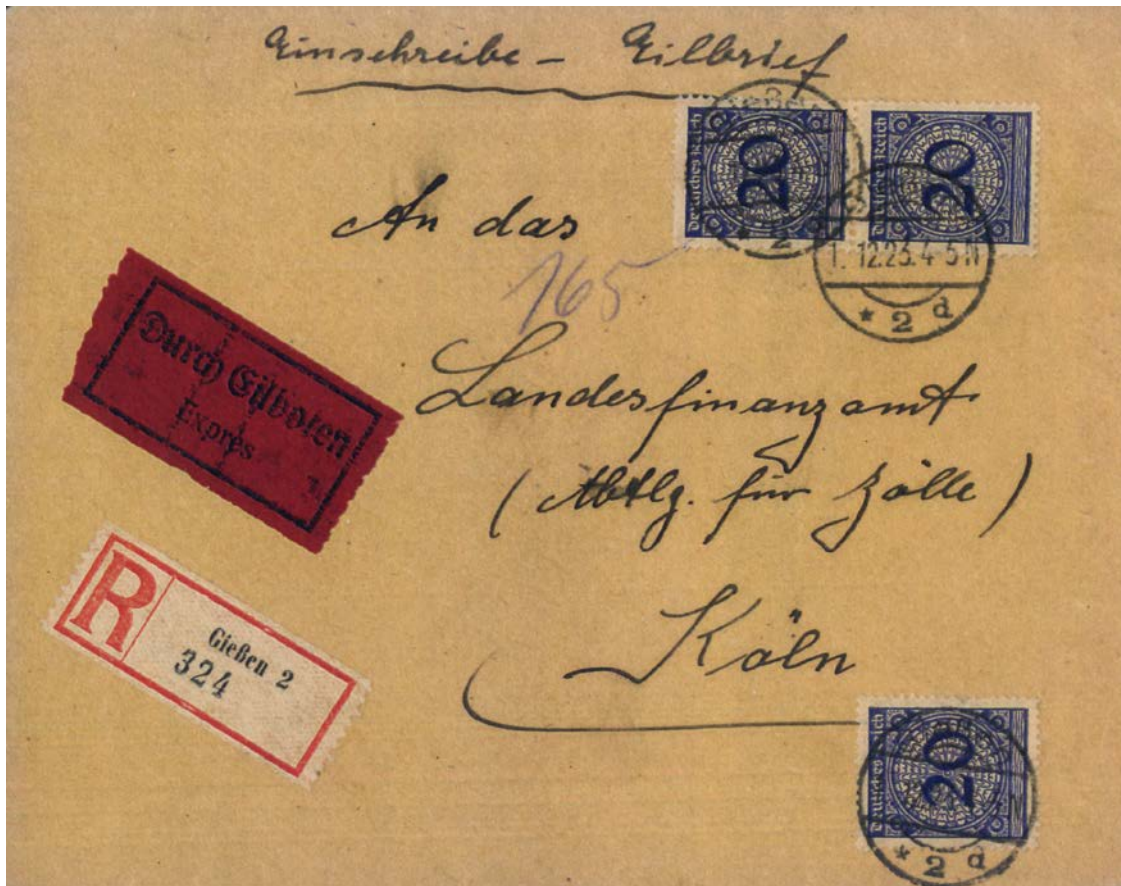 Einschreibe - Eilbrief
Deutsches Reich
20
Deutsches Reich
20
* 2 d
1. 12.23. 4-5 N
* 2 d
An das
165
Durch Eilboten
Exprès
Landesfinanzamt
(Abtlg. für Zölle)
R
Gießen 2
324
Köln
Deutsches Reich
20
N
* 2 d